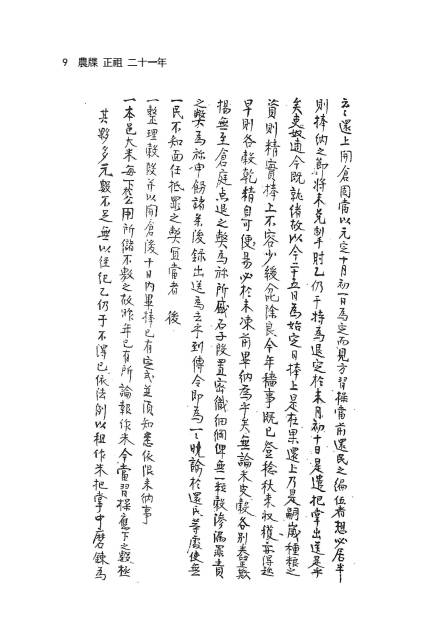 9 農牒 正祖 二十一年
云云還上開倉因當以元定十月初一日爲定而見方習操當前還民之編伍者想必居半
則捧納之節將未免剝肘乙仍于特爲退定於來月初十日是遣把掌出送是乎
矣吏奴逋今旣就緒故以今二十五日爲始定日捧上是在果還上乃是嗣歲種粮之
資則精實捧上不容少緩兺除良今年穡事旣已登稔秋來收穫 得趁
早則各穀乾精自可便易必於未凍前畢納爲乎矣無論米皮穀各別舂 簸
揚無至倉庭点退之弊爲旀所盛石子段置密織 俾無一粒穀滲漏罪責
之弊爲旀申飭諸条後錄出送爲去乎到傳令卽爲一一曉諭於還民等處使無
一民不知面任抵罪之弊宜當者 後
一整理穀段并以開倉後十日內畢捧已有定式並須知悉依限來納事
一本邑大米每下公用所儲不敷之故昨年已有所論報作米今當習操應下之穀極
其夥多元穀不足無以經紀乙仍于不得已依法例以租作米把掌中磨鍊爲